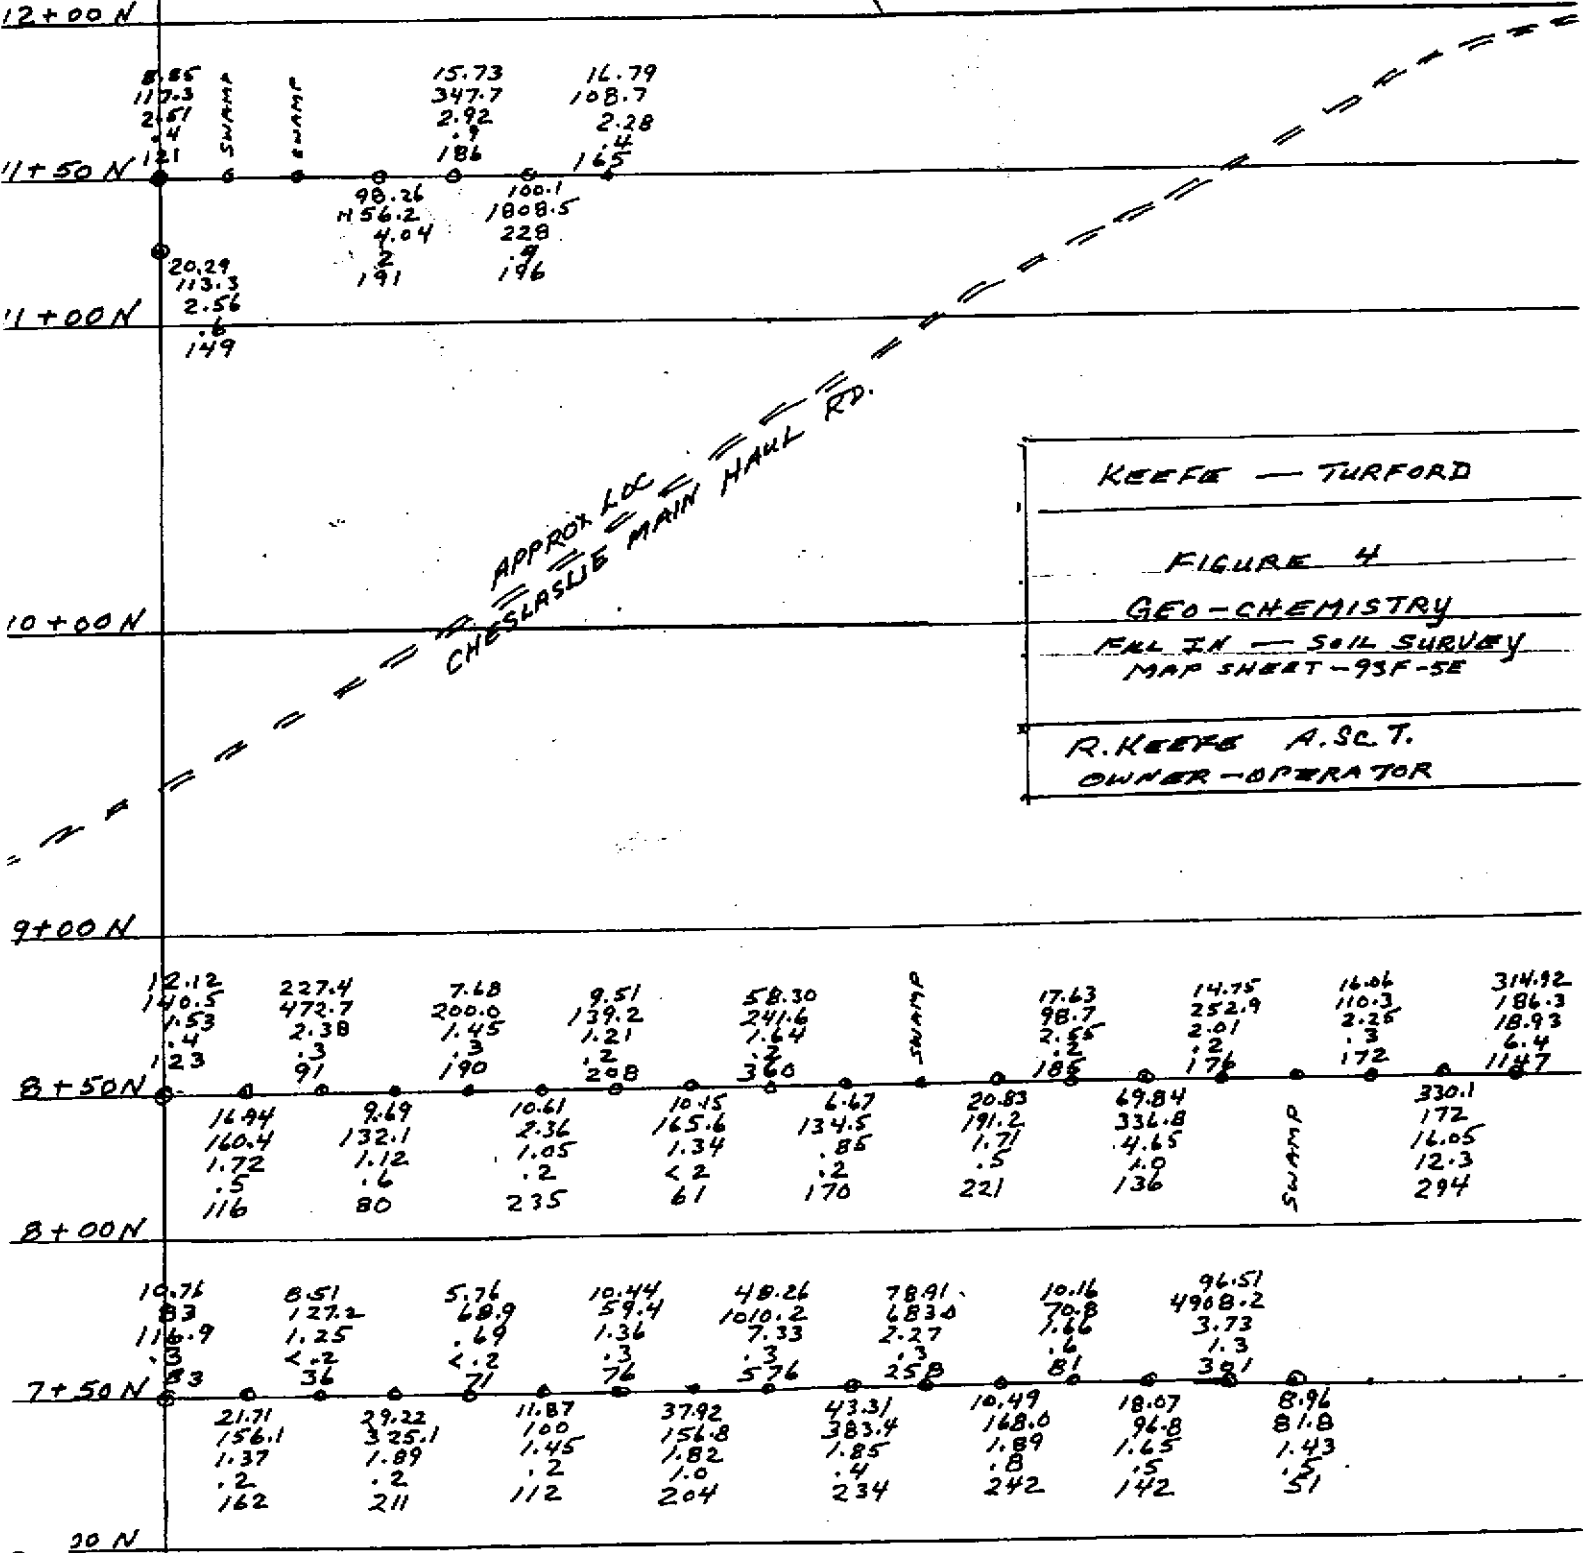 12+00 N
8.85
117.3
2.51
.4
121
SWAMP
SWAMP
15.73
347.7
2.92
.9
186
16.79
108.7
2.28
.4
165
11+50 N
98.26
1156.2
4.04
.2
191
100.1
1808.5
228
.9
196
20.29
113.3
2.56
.6
149
11+00 N
APPROX LOC
CHESLASLIE MAIN HAUL RD.
KEEFE — TURFORD
FIGURE 4
GEO-CHEMISTRY
FILL IN — SOIL SURVEY
MAP SHEET-93F-5E
R.KEEFE A.SC.T.
OWNER-OPERATOR
10+00 N
9+00 N
12.12
140.5
1.53
.4
123
227.4
472.7
2.38
.3
91
7.68
200.0
1.45
.3
190
9.51
139.2
1.21
.2
208
58.30
241.6
1.64
.2
360
SWAMP
17.63
98.7
2.55
.2
185
14.75
252.9
2.01
.2
176
16.06
110.3
2.25
.3
172
314.92
186.3
18.93
6.4
1147
8+50N
16.94
160.4
1.72
.5
116
9.69
132.1
1.12
.6
80
10.61
2.36
1.05
.2
235
10.15
165.6
1.34
<2
61
6.67
134.5
.85
.2
170
20.83
191.2
1.71
.5
221
69.84
336.8
4.65
1.0
136
SWAMP
330.1
172
16.05
12.3
294
8+00N
10.76
83
116.9
.3
83
8.51
127.2
1.25
<.2
36
5.76
68.9
.69
<.2
71
10.44
59.4
1.36
.3
76
48.26
1010.2
7.33
.3
576
78.91
683.0
2.27
.3
258
10.16
70.8
1.66
.6
81
96.51
4908.2
3.73
1.3
381
7+50N
21.71
156.1
1.37
.2
162
29.22
325.1
1.89
.2
211
11.87
100
1.45
.2
112
37.92
156.8
1.82
1.0
204
43.31
383.4
1.85
.4
234
10.49
168.0
1.89
.8
242
18.07
96.8
1.65
.5
142
8.96
81.8
1.43
.5
51
20 N